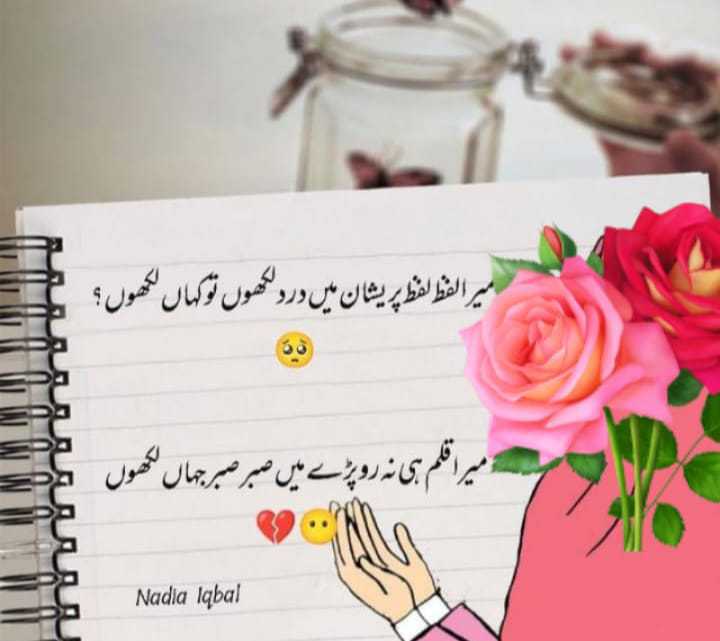 میرا لفظ لفظ پریشان میں درد لکھوں تو کہاں لکھوں ؟
🥺
میرا قلم ہی نہ رو پڑے میں صبر صبر جہاں لکھوں
💔😶
Nadia Iqbal